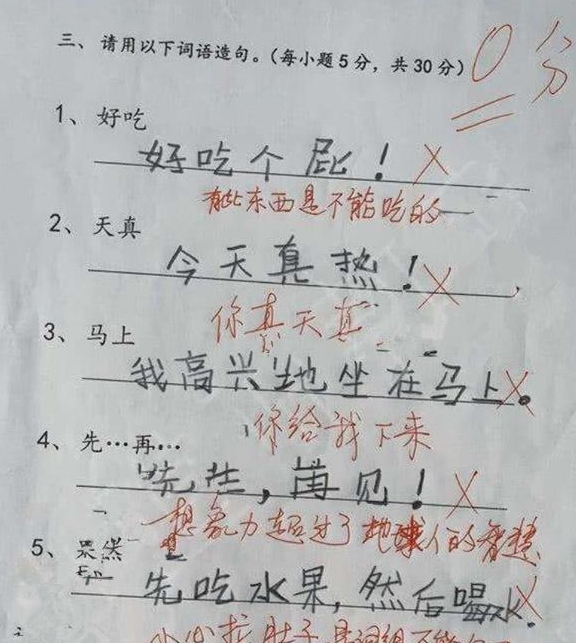 三、请用以下词语造句。（每小题5分，共30分）
0分
1、好吃
好吃个屁！
有些东西是不能吃的
2、天真
今天真热！
你真天真
3、马上
我高兴地坐在马上。
你给我下来
4、先…再…
先生，再见！
想象力超过了地球人的智慧
5、果然
先吃水果，然后喝水。
小心拉肚子 是词组不能